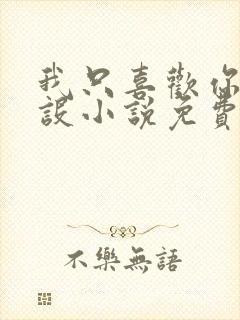 我只喜歡你
設小說免費
不樂無語